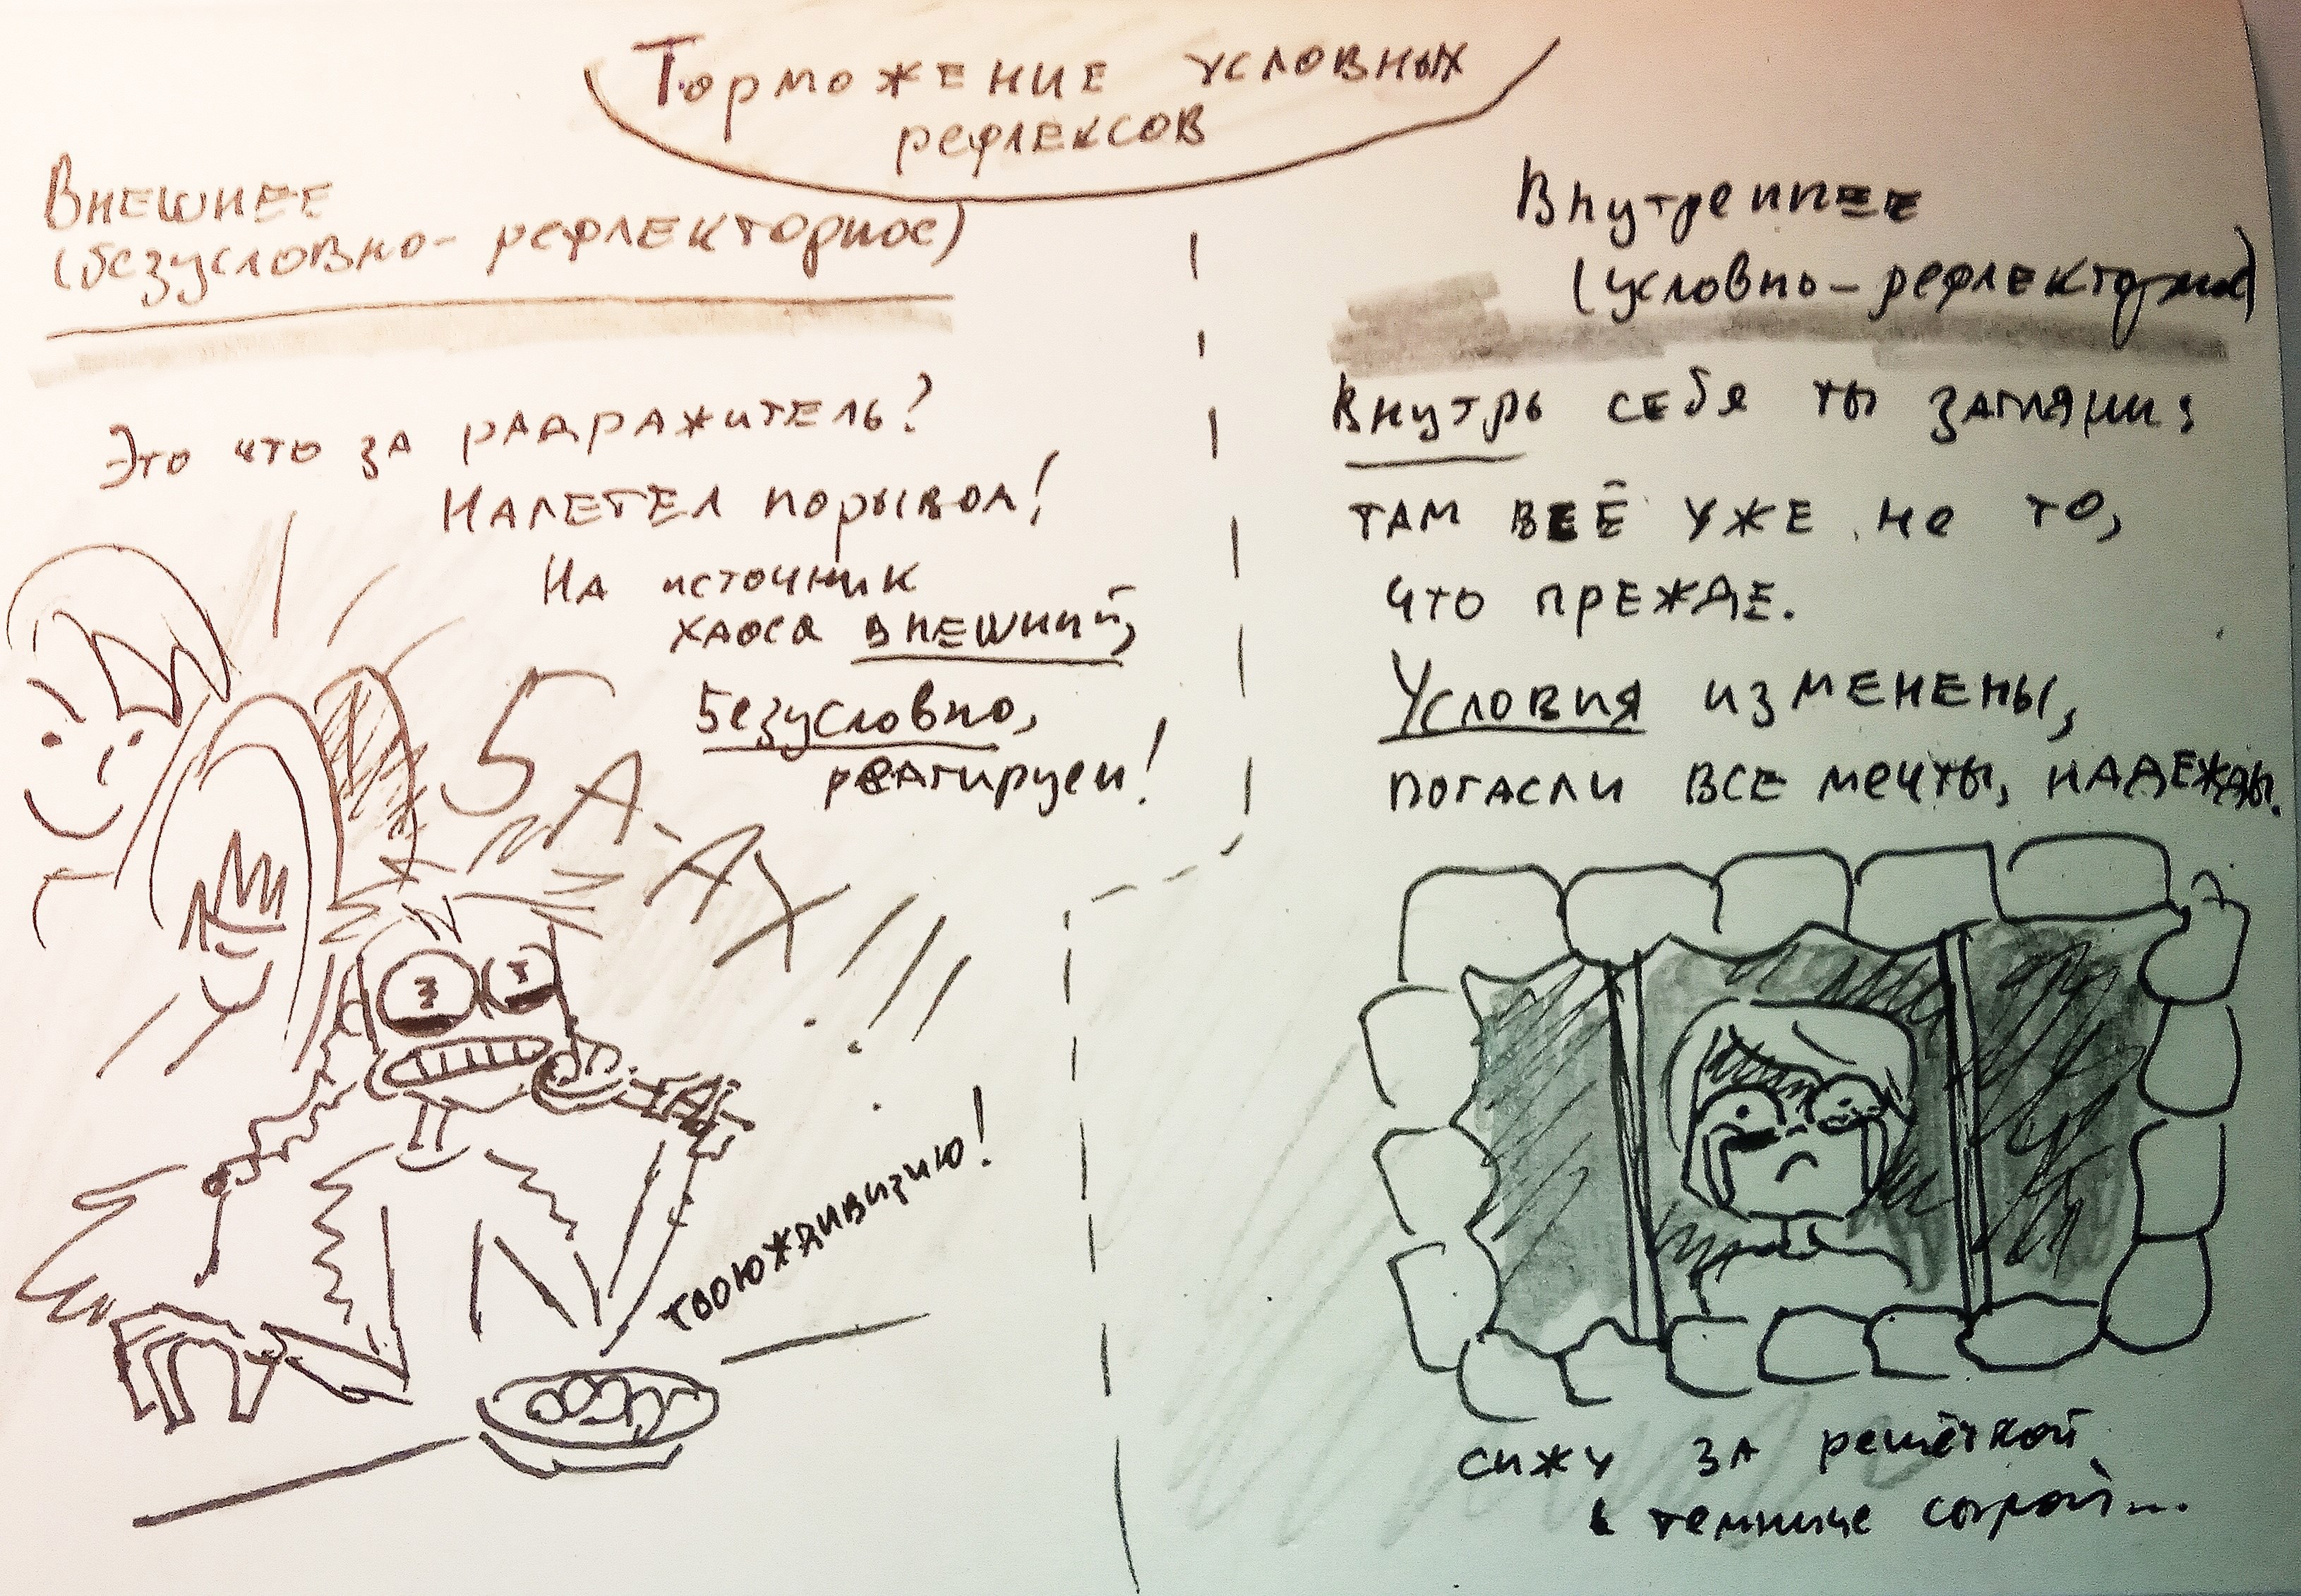 Торможение условных
рефлексов
Внешнее
(безусловно-рефлекторное)
Это что за раздражитель?
Налетел порывом!
На источник
хаоса внешний,
безусловно,
реагируем!
БА-АХ!!!
твоюждивизию!
Внутреннее
(условно-рефлекторное)
Внутрь себя ты загляни,
там всё уже не то,
что прежде.
Условия изменены,
погасли все мечты, надежды.
сижу за решёткой
в темнице сырой...